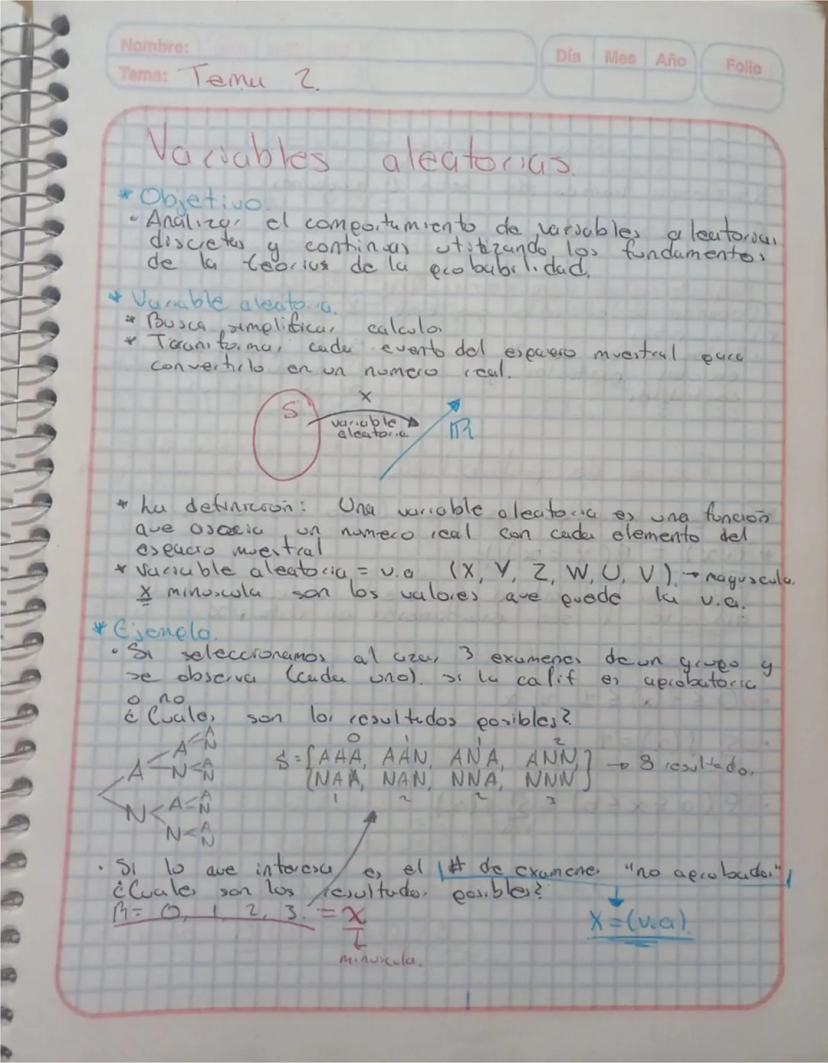 Nombre:
Día Mes Año Folio
Tema: Tema 2.
Variables aleatorias.
* Objetivo.
• Analizar el comportamiento de variables aleatorias
discretas y continuas utilizando los fundamentos
de la teorías de la probabilidad.
* Variable aleatoria.
* Busca simplificar calculo
* Transforma, cada evento del espacio muestral para
convertirlo en un numero real.
S X
variable
aleatoria
R
* La definición: Una variable aleatoria es una función
que asocia un numero real con cada elemento del
espacio muestral
* Variable aleatoria = v.a (X, Y, Z, W, U, V). → mayuscula.
x minuscula son los valores que puede la v.a.
* Ejemplo.
• Si seleccionamos al azar 3 examenes de un grupo y
se observa (cada uno). si la calif es aprobatoria
o no
¿Cuales son los resultados posibles?
0 1 1 2
S = {AAA, AAN, ANA, ANN, → 8 resultado.
NAA, NAN, NNA, NNN}
1 2 2 3
A A A N
N A N
N A A N
N A N
• Si lo que interesa es el # de examenes "no aprobados"
¿Cuales son los resultados posibles?
R = 0, 1, 2, 3. = x
X = (v.a).
minuscula.